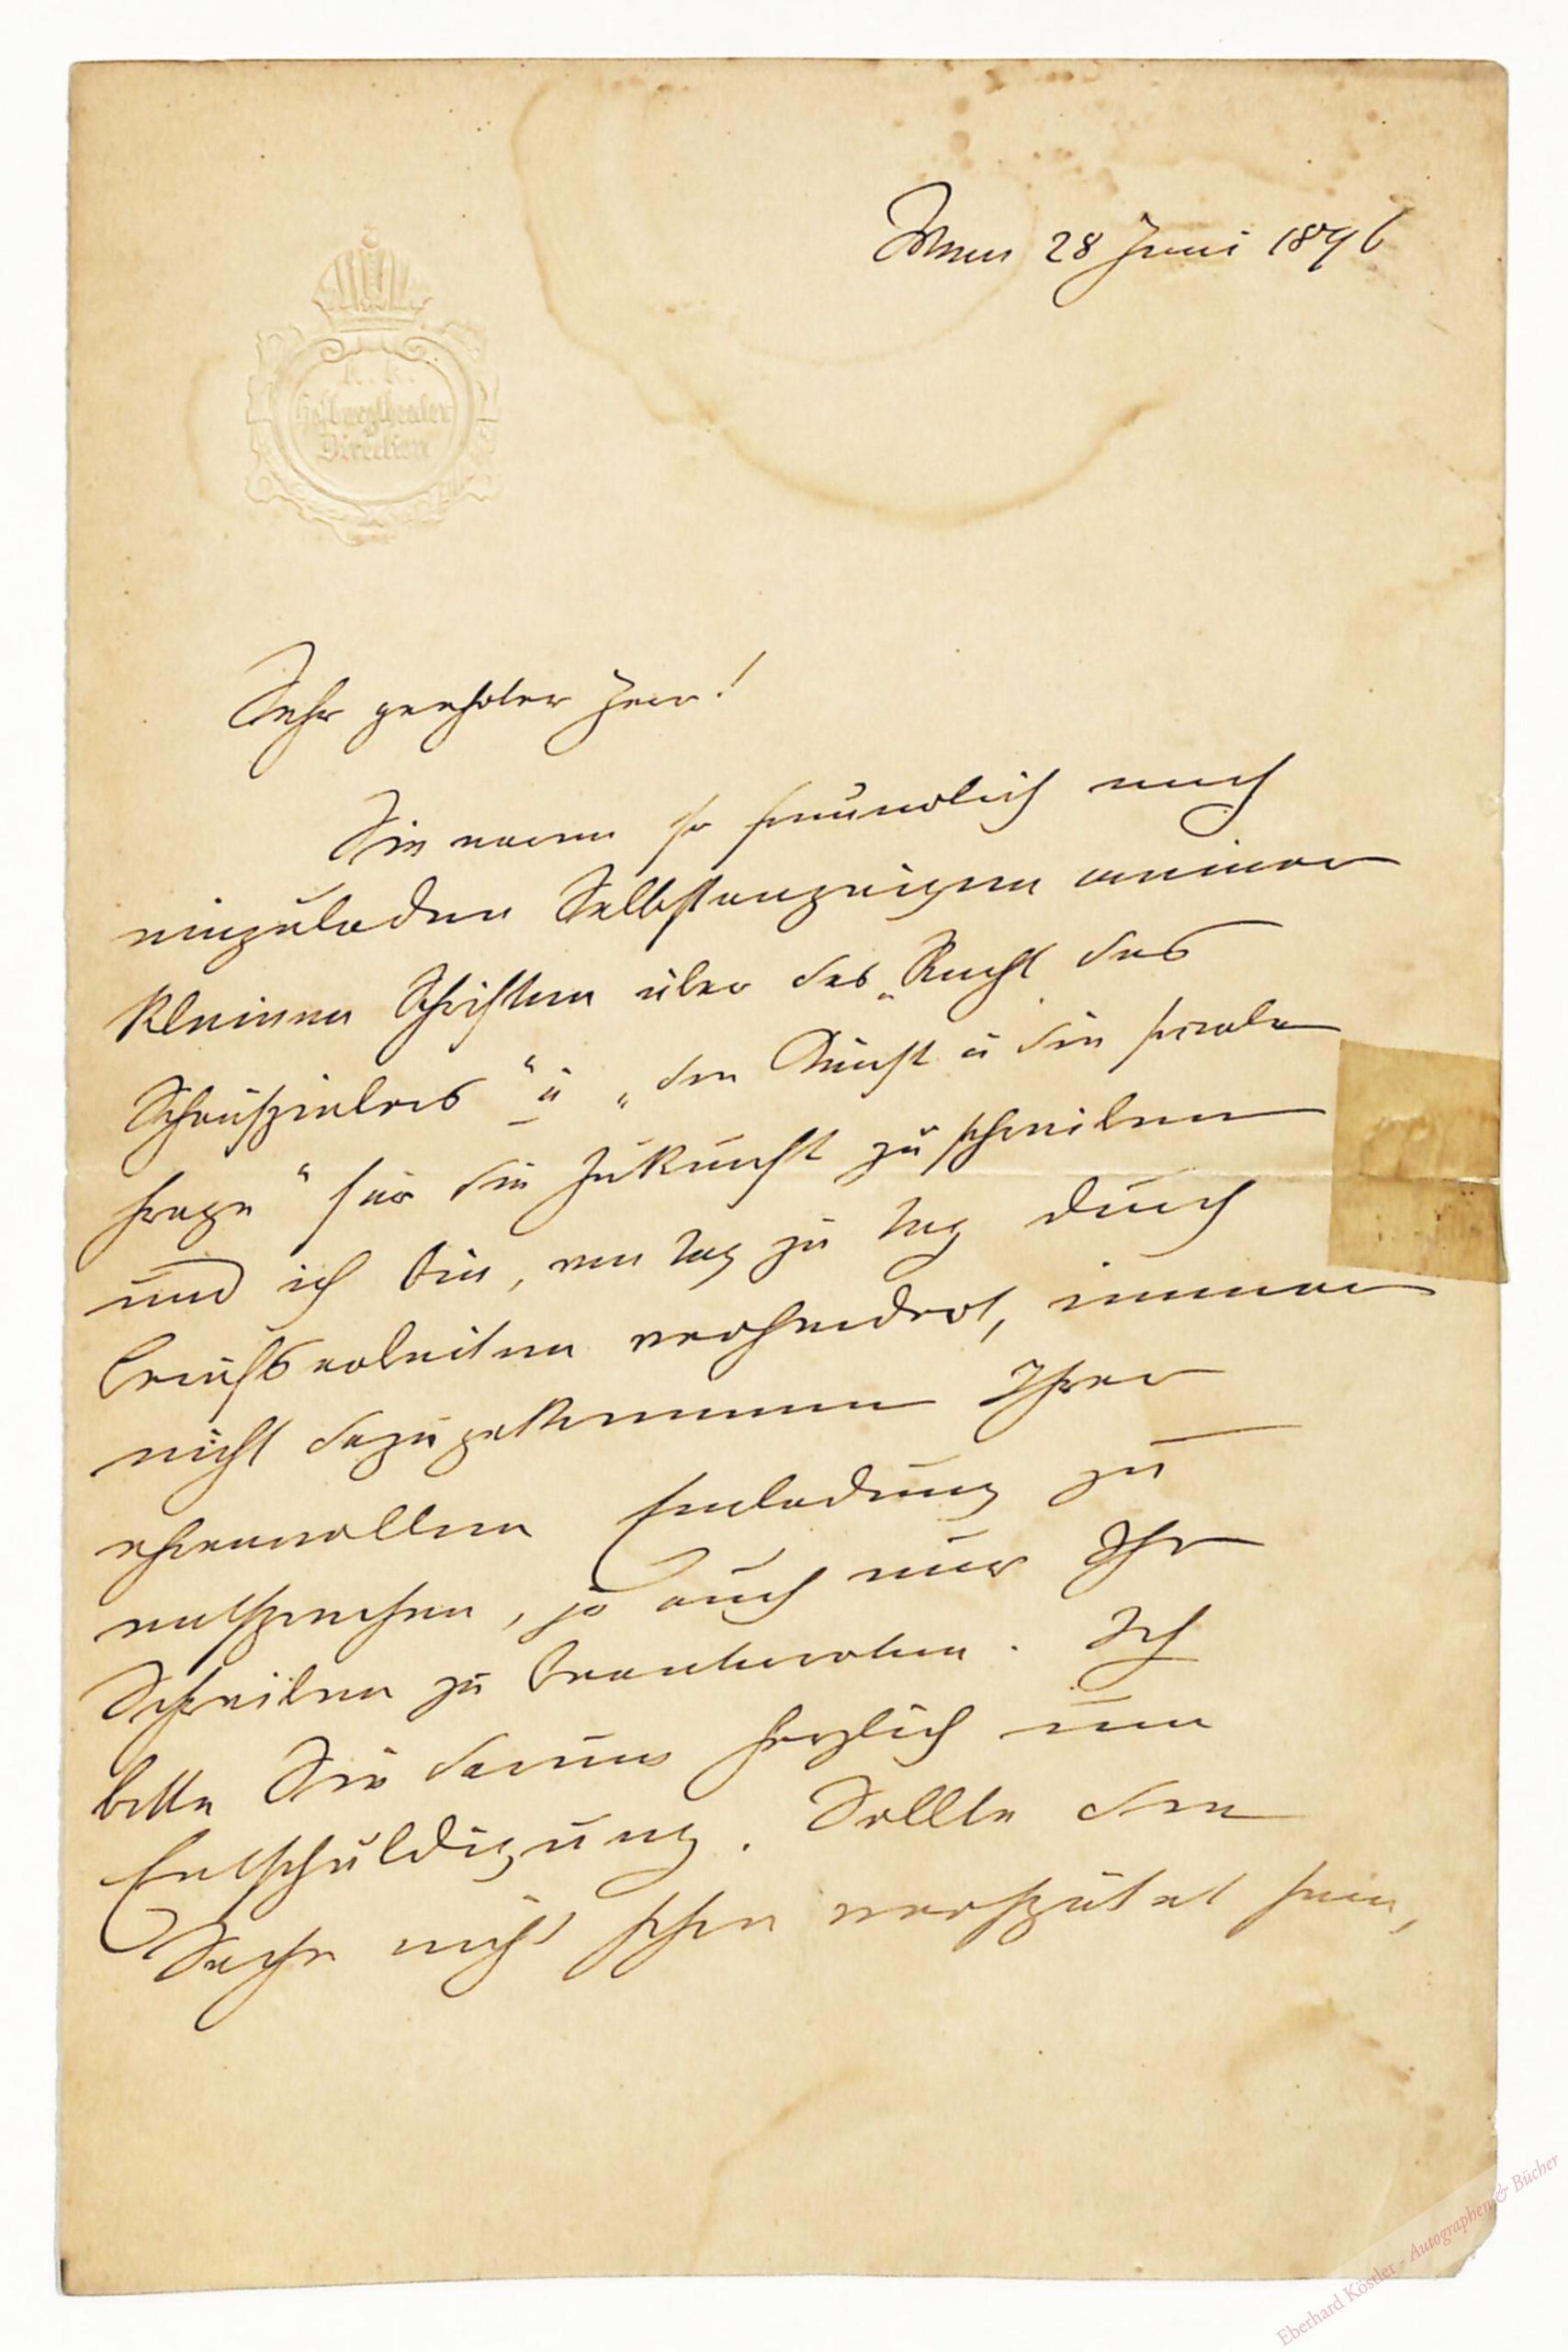 Wien 28 Juni 1896
K. K.
Hofburgtheater
Direction
Sehr geehrter Herr!
Sie waren so freundlich mich
einzuladen Selbstanzeigen meiner
kleinen Schriften über das „Recht des
Schauspielers“ u „die Kunst u die soziale
Frage“ für die Zukunft zu schreiben
und ich bin, von Tag zu Tag durch
Berufsarbeiten verhindert, immer
nicht dazugekommen Ihrer
ehrenvollen Einladung zu
entsprechen, ja auch nur Ihr
Schreiben zu beantworten. Ich
bitte Sie darum herzlich um
Entschuldigung. Sollte die
Sache nicht schon verspätet sein,
Eberhard Köstler - Autographen & Bücher